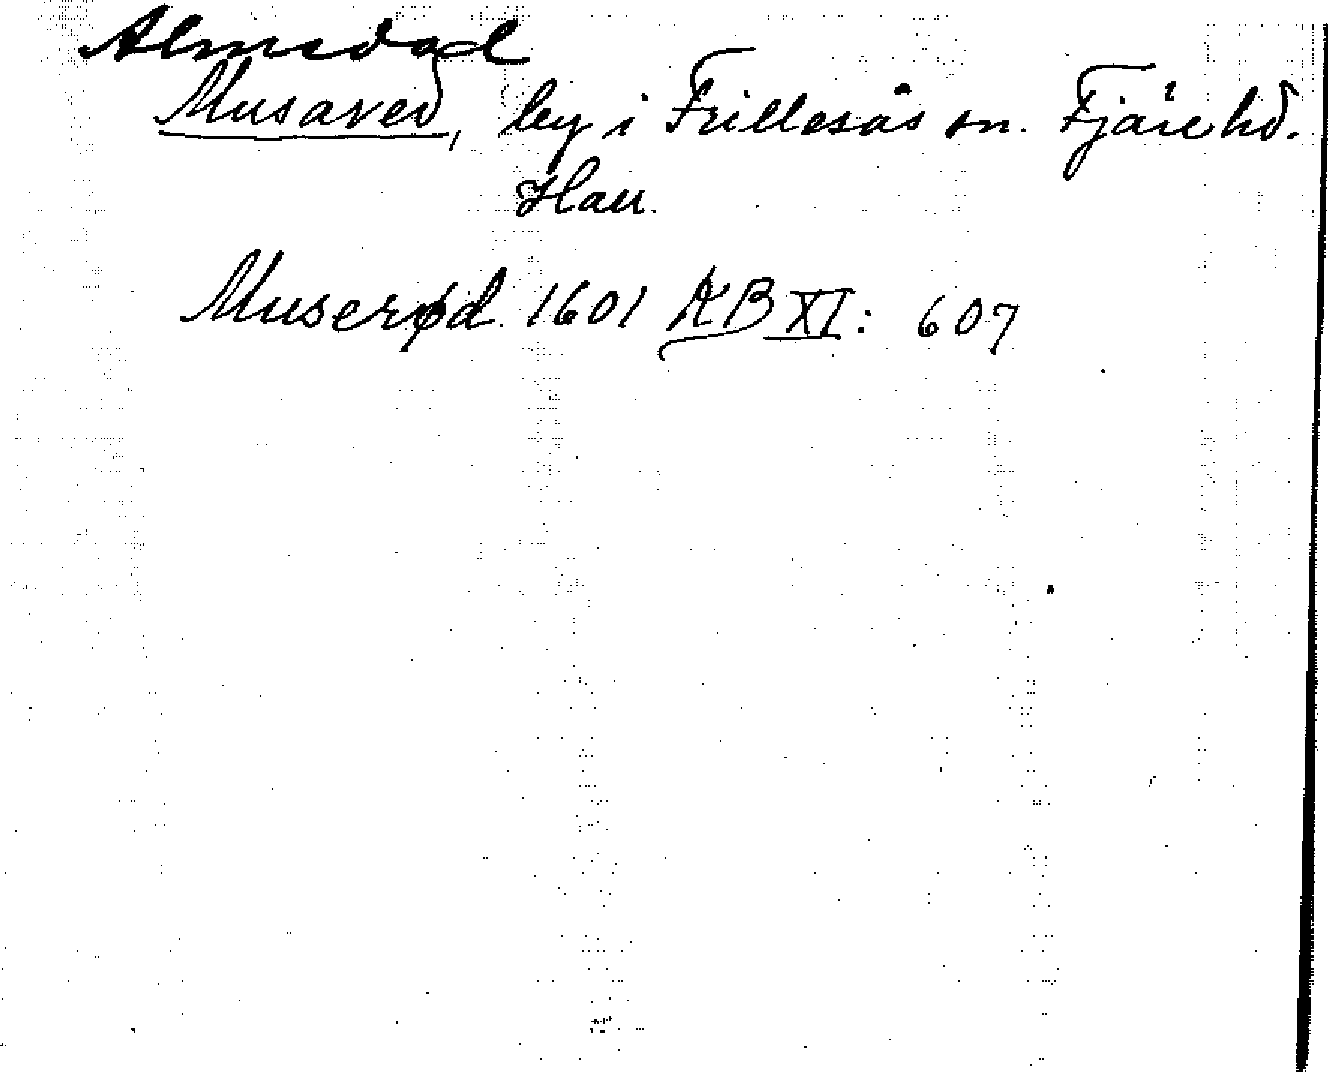 Almedad
Musared, by i Frillesås sn. Fjäre hd.
Hall.
Muserød 1601 KB XI: 607